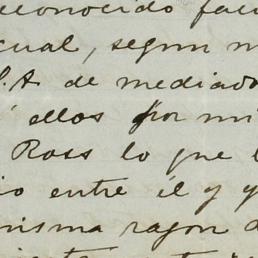 reconocido fac
cual, segun n
S.A de mediado
ellos por mi
Ross lo que l
io entre él y y
misma razon d